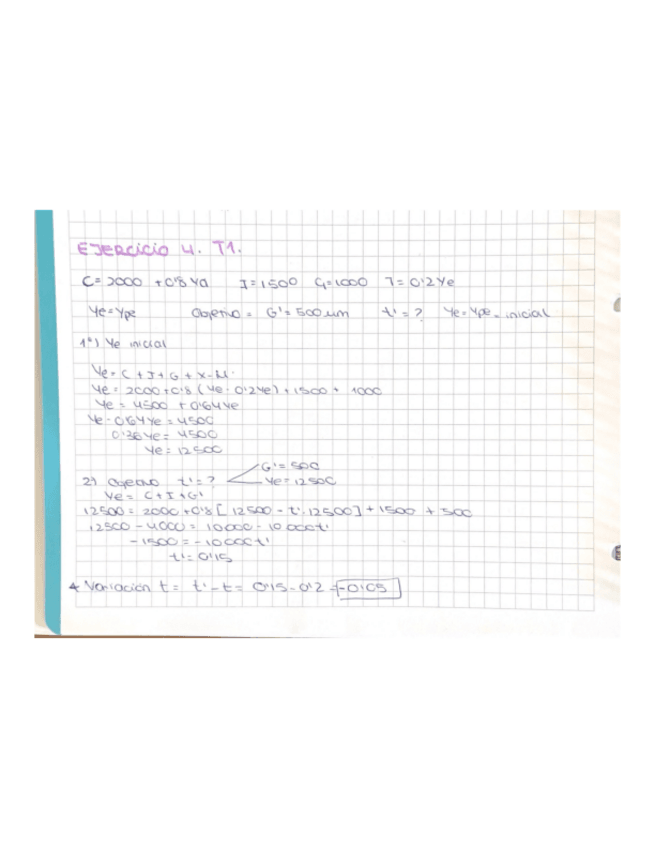 EJERCICIO 4. T1.
C = 2000 + 0'8 Yd I = 1500 G = 1000 T = 0'2 Ye
Ye = Ype Objetivo = G' = 500 um t' = ? Ye = Ype = inicial
1º) Ye inicial
Ye = C + I + G + X - M.
Ye = 2000 + 0'8 (Ye - 0'2Ye) + 1500 + 1000
Ye = 4500 + 0'64Ye
Ye - 0'64Ye = 4500
0'36Ye = 4500
Ye = 12500
G' = 500
2) Objetivo t' = ? Ye = 12500
Ye = C + I + G'
12500 = 2000 + 0'8 [12500 - t'·12500] + 1500 + 500
12500 - 4000 = 10000 - 10000t'
-1500 = -10000t'
t' = 0'15
Variación t = t' - t = 0'15 - 0'2 = -0'05